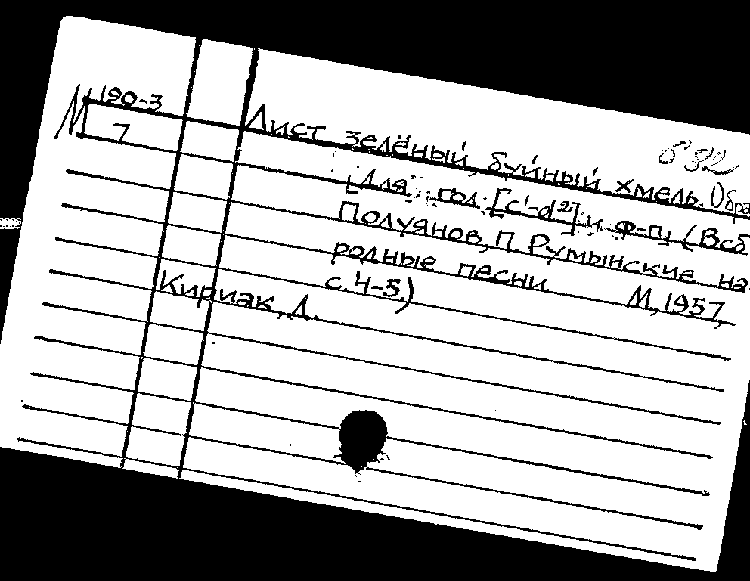 М 190-3
7
632
Лист зелёный, буйный хмель. Обра
[Для] гол. [c¹-d²] и ф-п. (В сб.
Полуянов, П. Румынские на-
родные песни М., 1957,
с. 4-5.)
Кириак, Д.